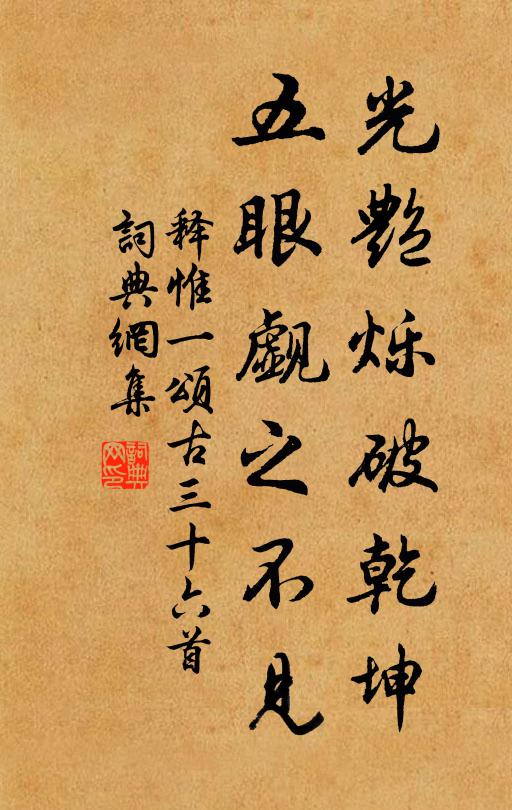 光艶烁破乾坤
五眼觑之不見
释惟一頌古三十六首
詞典網集
詞典网印